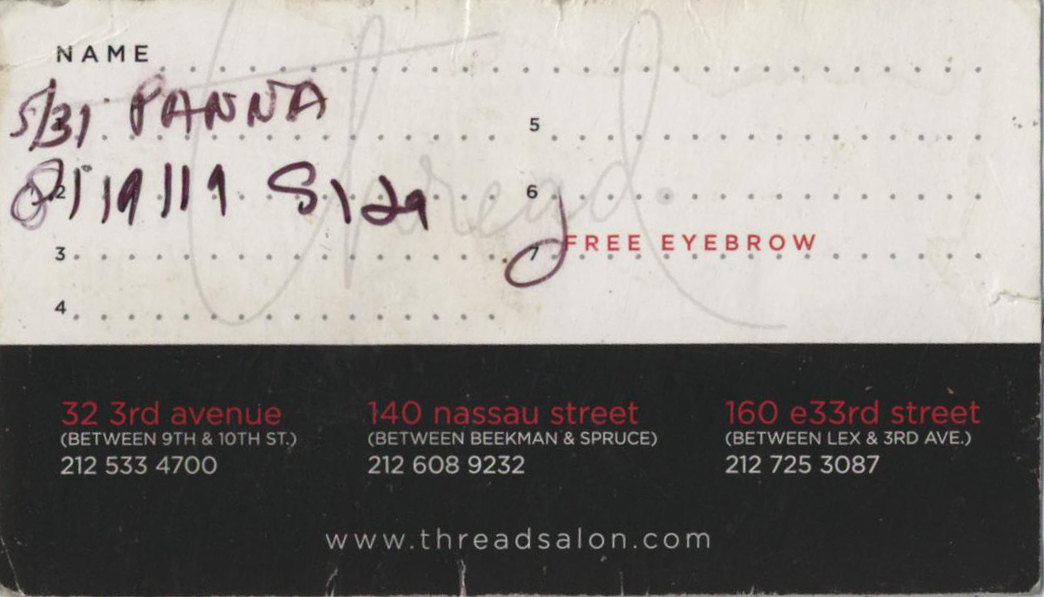 NAME
5/31 PANNA
2
3
4
5
6
7 FREE EYEBROW
thread.
32 3rd avenue
(BETWEEN 9TH & 10TH ST.)
212 533 4700
140 nassau street
(BETWEEN BEEKMAN & SPRUCE)
212 608 9232
160 e33rd street
(BETWEEN LEX & 3RD AVE.)
212 725 3087
www.threadsalon.com